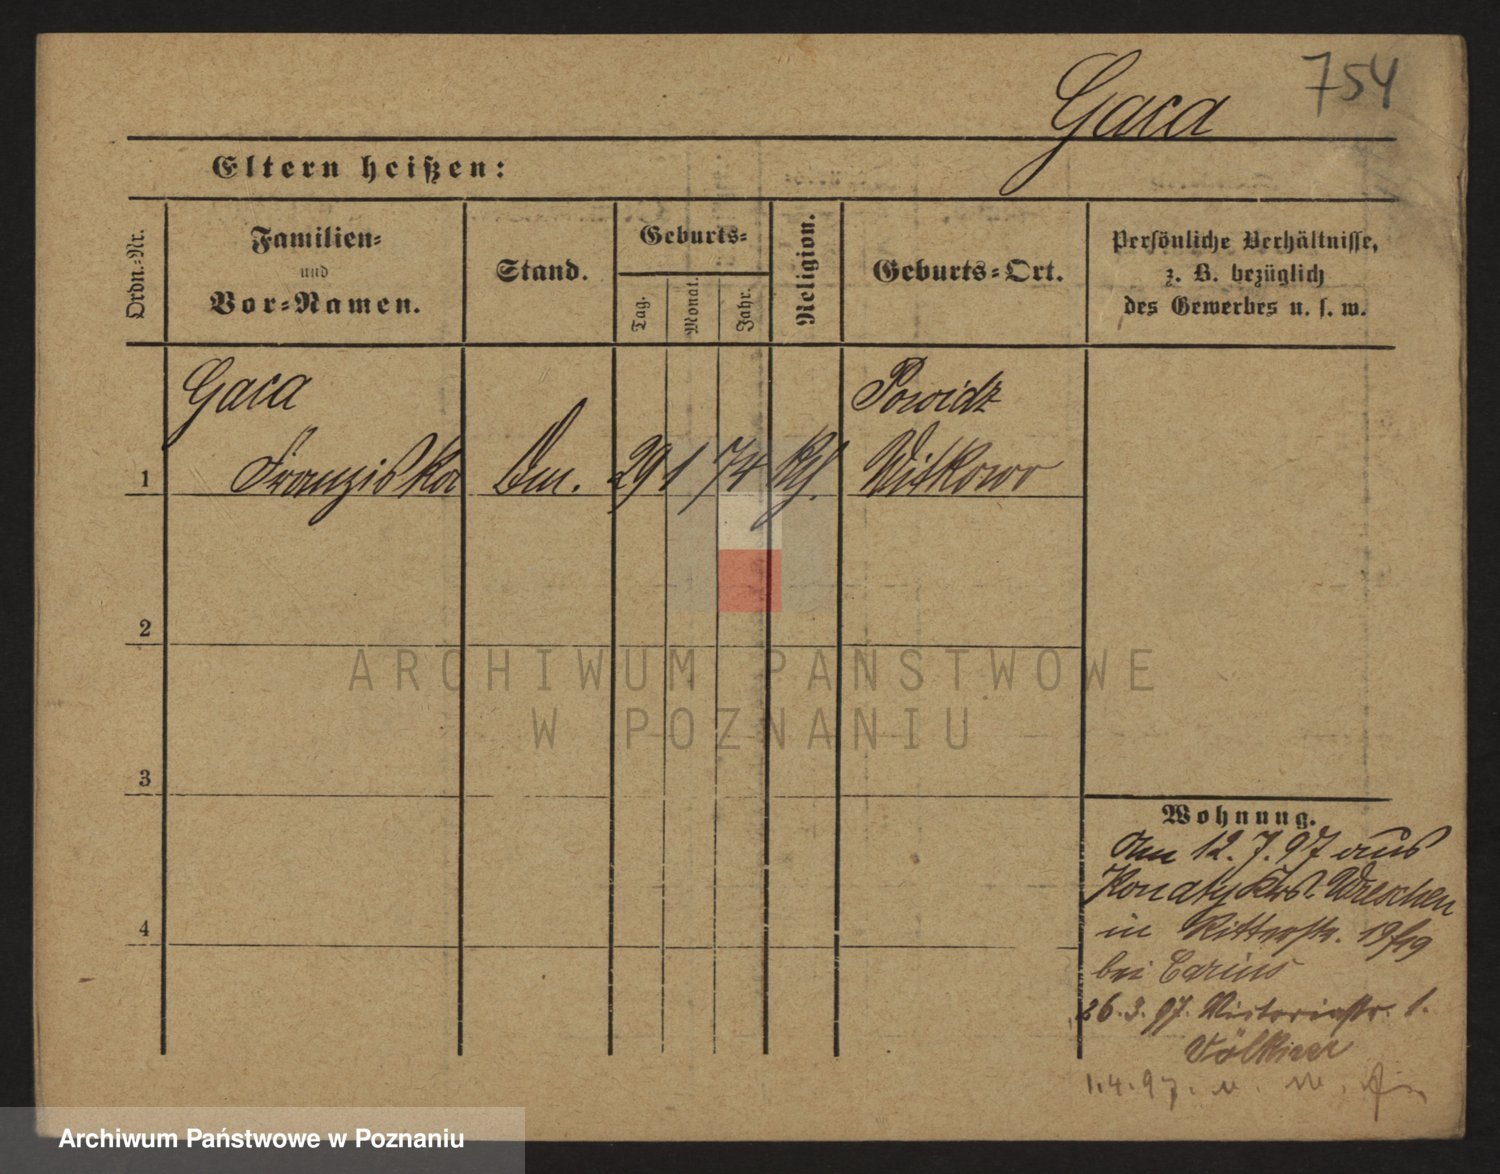 Gaca 754
Eltern heißen:
Ordn.=Nr.
Familien=
und
Vor=Namen.
Stand.
Geburts=
Tag.
Monat.
Jahr.
Religion.
Geburts=Ort.
Persönliche Verhältnisse,
z. B. bezüglich
des Gewerbes u. s. w.
Gaca Powidz
1 Franziska 29 1 74 Witkowo
2
3
4
ARCHIWUM PAŃSTWOWE
W POZNANIU
Wohnung.
12.7.97 aus
Wreschen
in Ritterstr. 19/19
bei
26.3.97. Victoriastr. 1.
1.4.97.
Archiwum Państwowe w Poznaniu